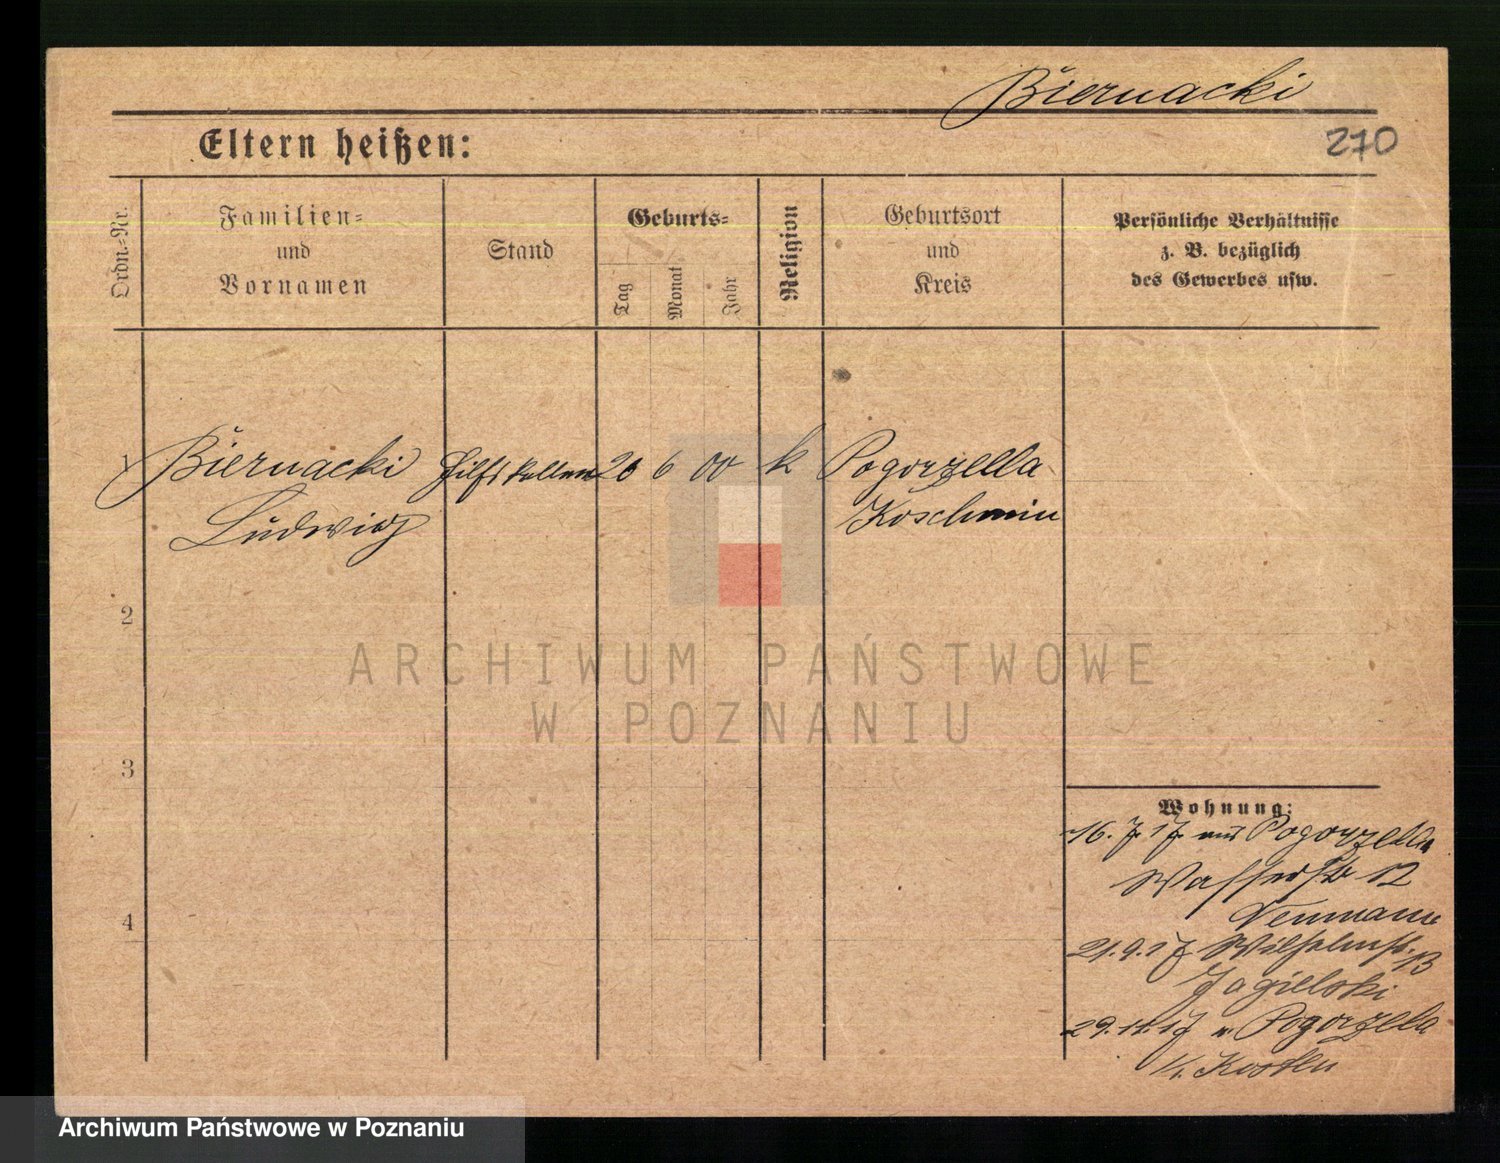 Biernacki
270
Eltern heißen:
Ordn.-Nr.
Familien-
und
Vornamen
Stand
Geburts-
Tag
Monat
Jahr
Religion
Geburtsort
und
Kreis
Persönliche Verhältnisse
z. B. bezüglich
des Gewerbes usw.
1 Biernacki 6 00 k Pogorzella
Ludwig Koschmin
2
3
4
ARCHIWUM PAŃSTWOWE
W POZNANIU
Wohnung:
16. 7. 17. aus Pogorzella
Wasserstr 12
Neumann
21.9.17 Wilhelmst. 13
Jagielski
29.11.17 n Pogorzella
Kr. Kosten
Archiwum Państwowe w Poznaniu